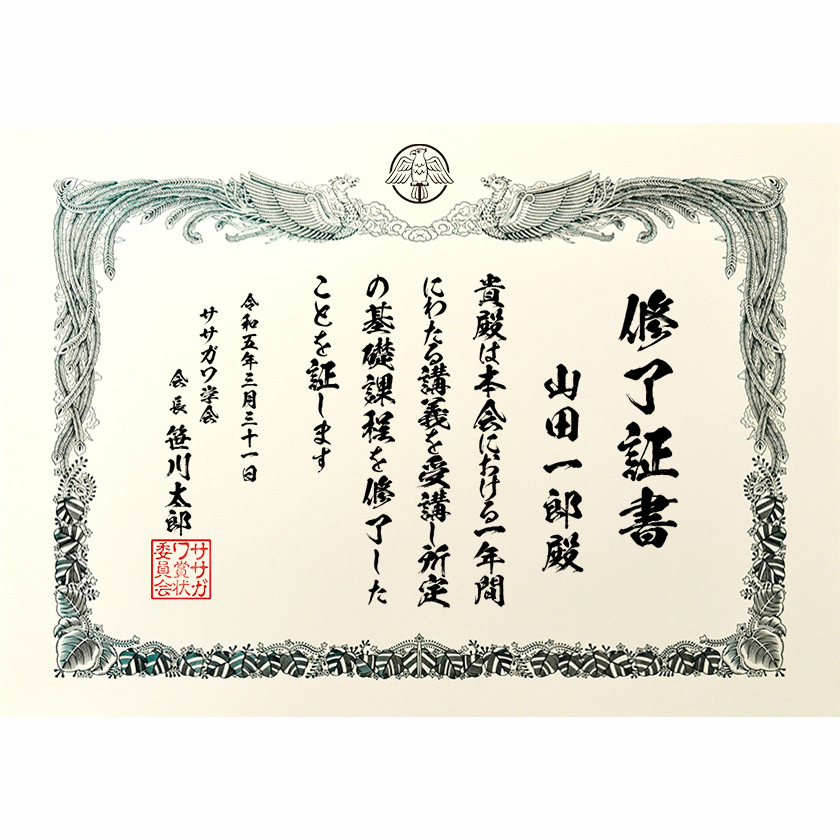 修了証書
山田一郎殿
貴殿は本会における一年間
にわたる講義を受講し所定
の基礎課程を修了した
ことを証します
令和五年三月三十一日
ササガワ学会
会長 笹川太郎
ササガ
ワ賞状
委員会